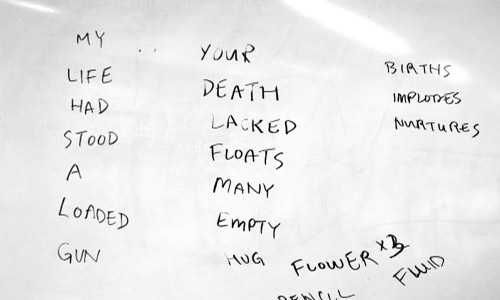 MY
LIFE
HAD
STOOD
A
LOADED
GUN
YOUR
DEATH
LACKED
FLOATS
MANY
EMPTY
HUG
BIRTHS
IMPLODES
NURTURES
FLOWER x3
FLUID
PENCIL